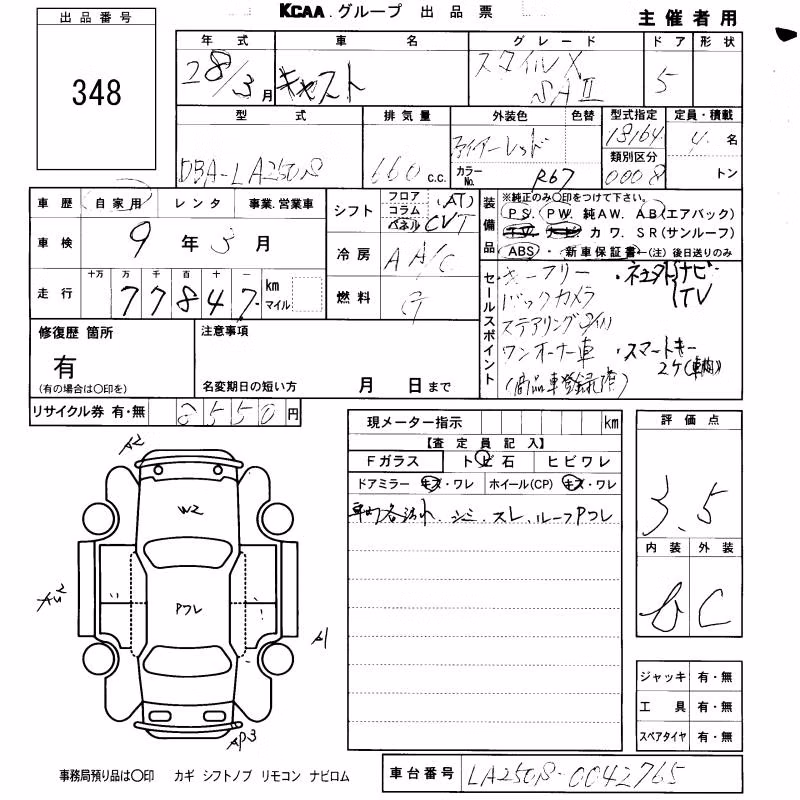 KCAA.グループ 出品票 主催者用
出品番号
348
年式 車名 グレード ドア 形状
28/3月 キャスト スタイルX SAII 5
型式 排気量 外装色 色替 型式指定 定員・積載
DBA-LA250S 660c.c. ファイアーレッド 18164 4名
カラーNo. R67 類別区分 0008 トン
車歴 自家用 レンタ 事業.営業車
車検 9年3月
走行 十万 万 千 百 十 一
77847 km マイル
シフト フロア コラム パネル (AT) CVT
冷房 AA/C
燃料 G
装備品 ※純正のみ〇印をつけて下さい。
PS. PW. 純AW. AB(エアバック)
カワ. SR(サンルーフ)
ABS ・ 新車保証書←(注)後日送りのみ
セールスポイント
・キーフリー
バックカメラ
ステアリング
ワンオーナー車
(商品車登録済)
・スマートキー
2ケ(車内)
ナビ
TV
修復歴 箇所
有
(有の場合は〇印を)
注意事項
名変期日の短い方 月 日まで
リサイクル券 有・無 8550円
現メーター指示 km
【査定員記入】
Fガラス トビ石 ヒビワレ
ドアミラー キズ・ワレ ホイール(CP) キズ・ワレ
車内各汚れ、シミ、スレ、ルーフPフレ
評価点
3.5
内装 外装
b C
ジャッキ 有・無
工具 有・無
スペアタイヤ 有・無
A2
W2
Pフレ
A1
AP3
事務局預り品は〇印 カギ シフトノブ リモコン ナビロム
車台番号 LA250S-0042765